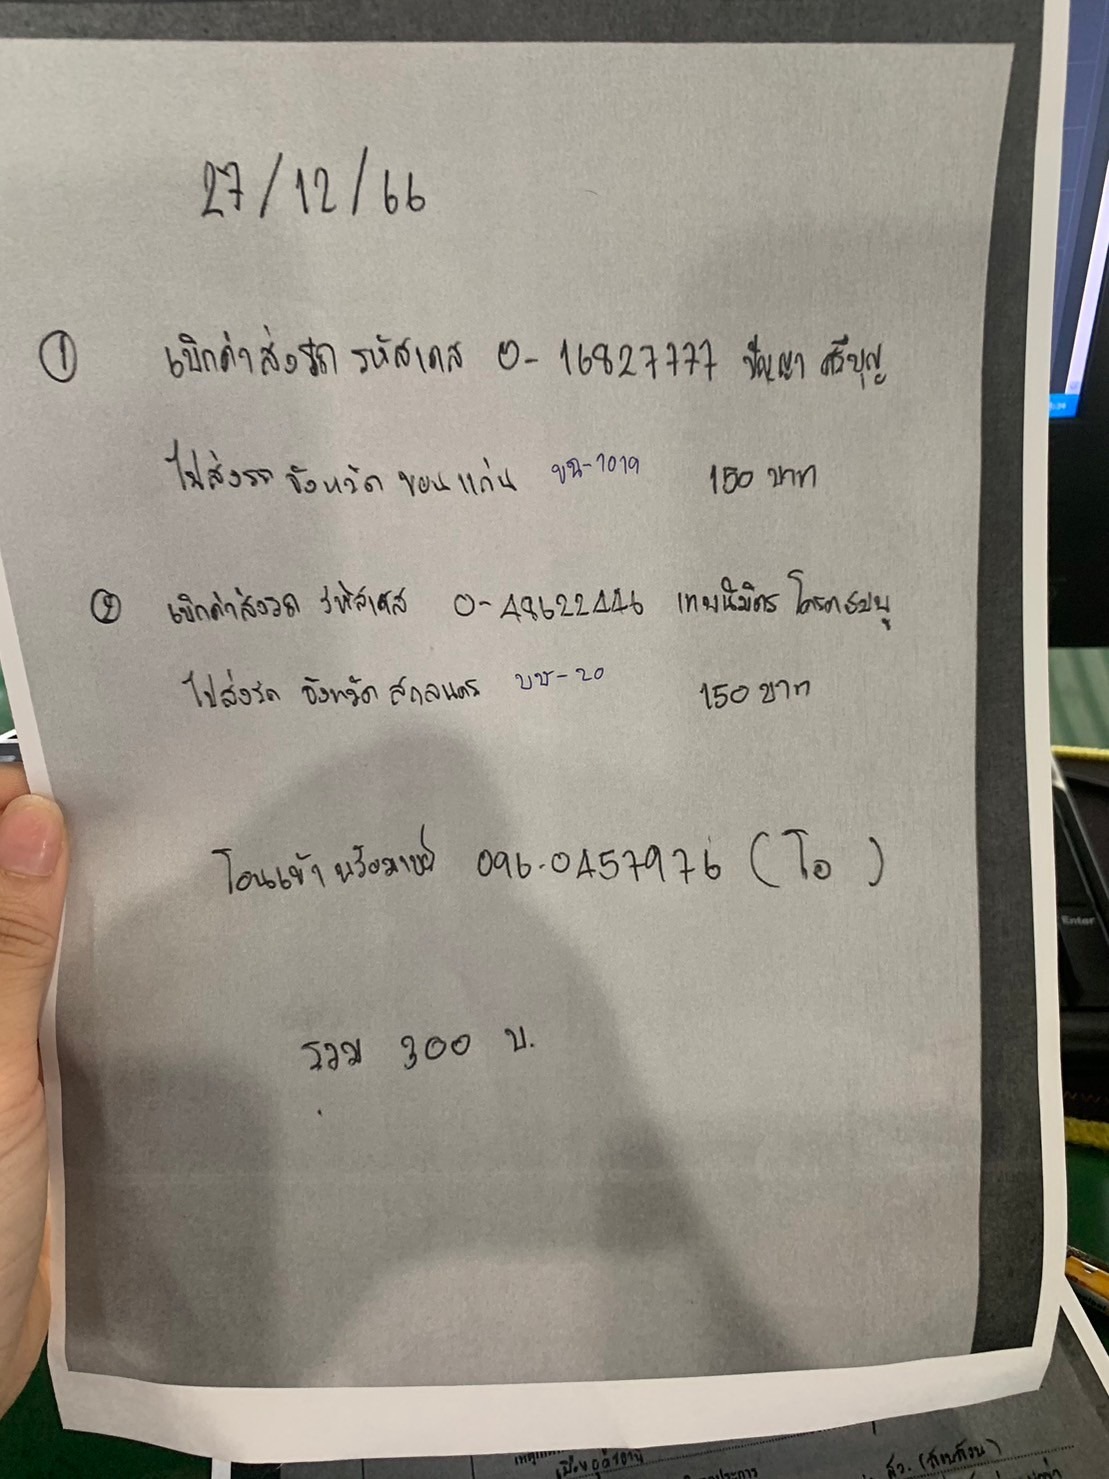 27/12/66
① เบิกค่าส่งรถ รหัสเคส O-16827777 ปัญญา ศรีบุญ
ไปส่งรถ จังหวัด ขอนแก่น ขฉ-1019 150 บาท
② เบิกค่าส่งรถ รหัสเคส O-48622446 เทพนิมิตร โคตรชมภู
ไปส่งรถ จังหวัด สกลนคร บบ-20 150 บาท
โอนเข้า พร้อมเพย์ 096-0457976 (โอ)
รวม 300 บ.
Enter
เมืองอุดรธานี